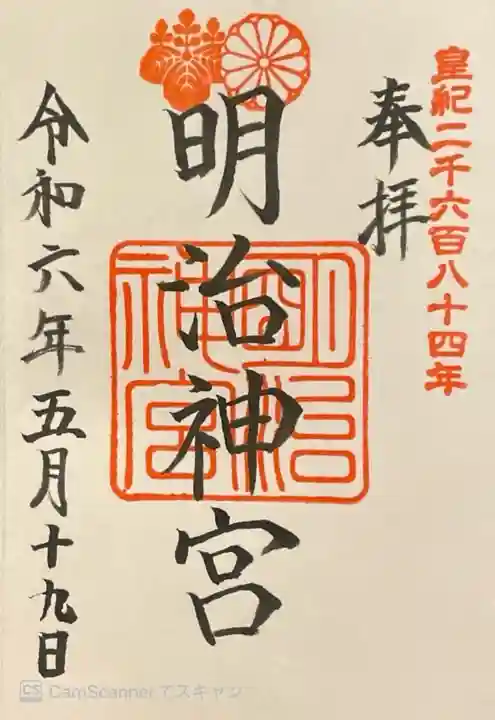 皇紀二千六百八十四年
奉拝
明治神宮
明治神宮
令和六年五月十九日
CS CamScanner でスキャン